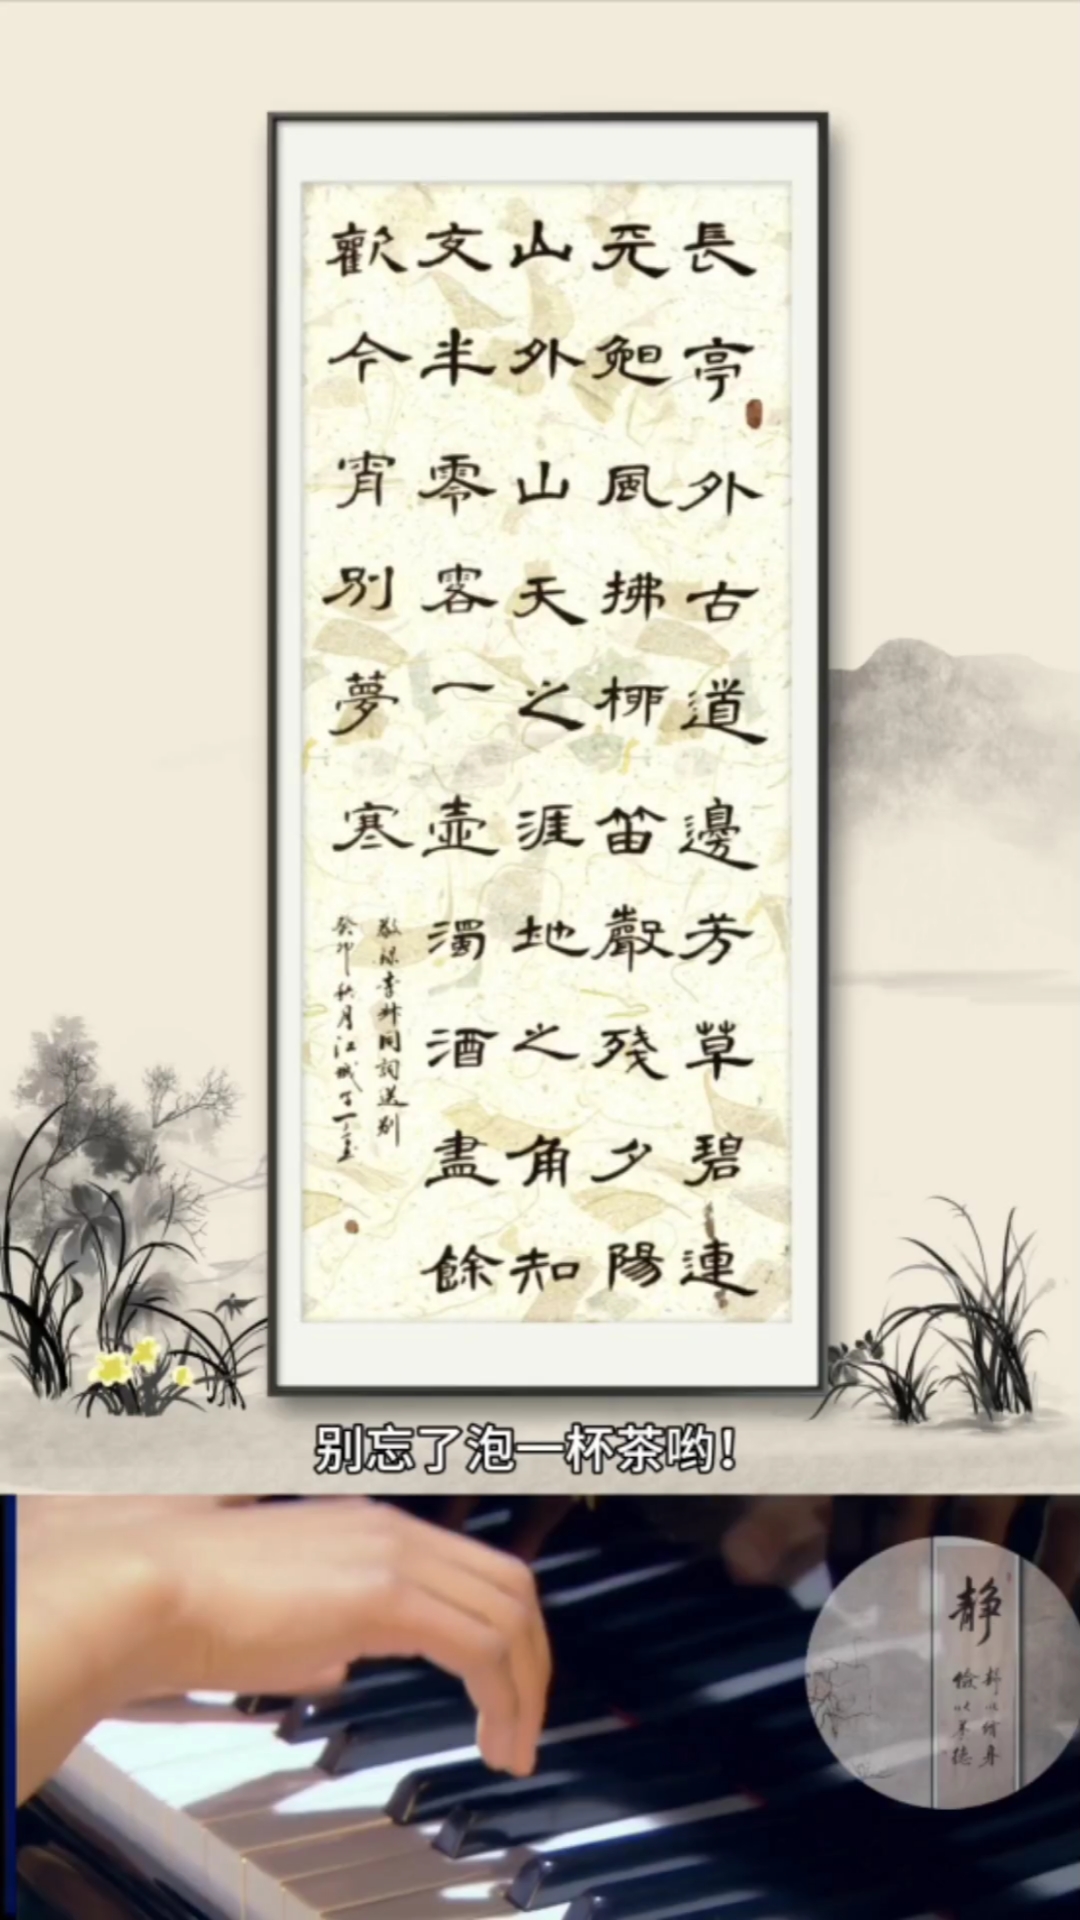 長亭外古道邊芳草碧連
天晚風拂柳笛聲殘夕陽
山外山天之涯地之角知
交半零落一壺濁酒盡餘
歡今宵別夢寒
敬錄李叔同詞送別
癸卯秋月江城子一
别忘了泡一杯茶哟！
静
静以修身
儉以養德